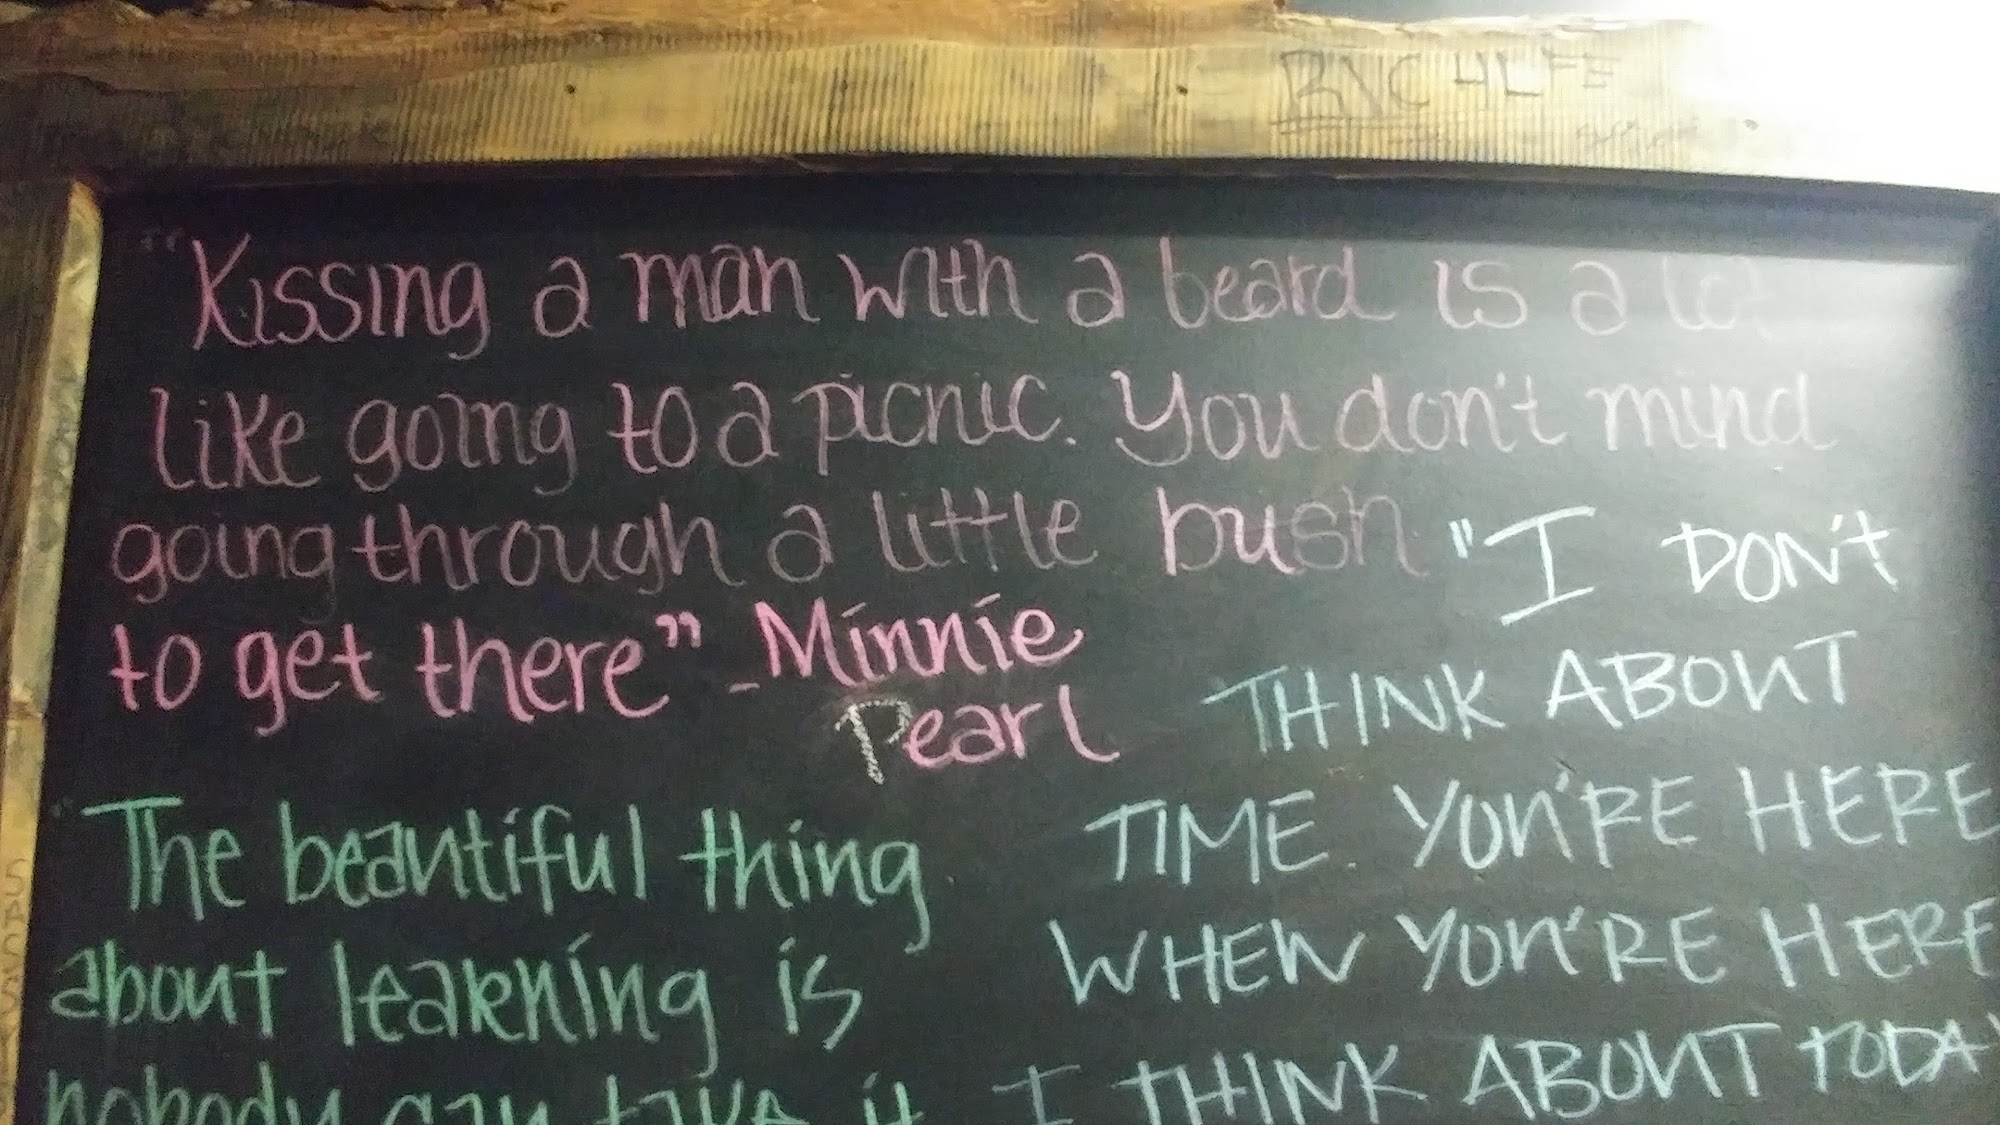 RICH LFE
"Kissing a man with a beard is a lot
like going to a picnic. You don't mind
going through a little bush
to get there" - Minnie
Pearl
"I DON'T
THINK ABOUT
TIME. YOU'RE HERE
WHEN YOU'RE HERE
I THINK ABOUT TODAY
"The beautiful thing
about learning is
nobody can take it